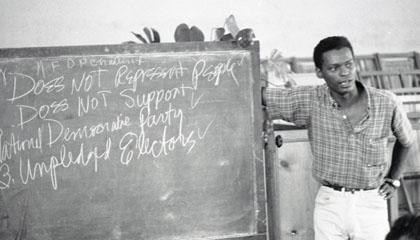 MFDP Challenge
Does Not Represent People
Does Not Support
National Democratic Party
3. Unpledged Electors